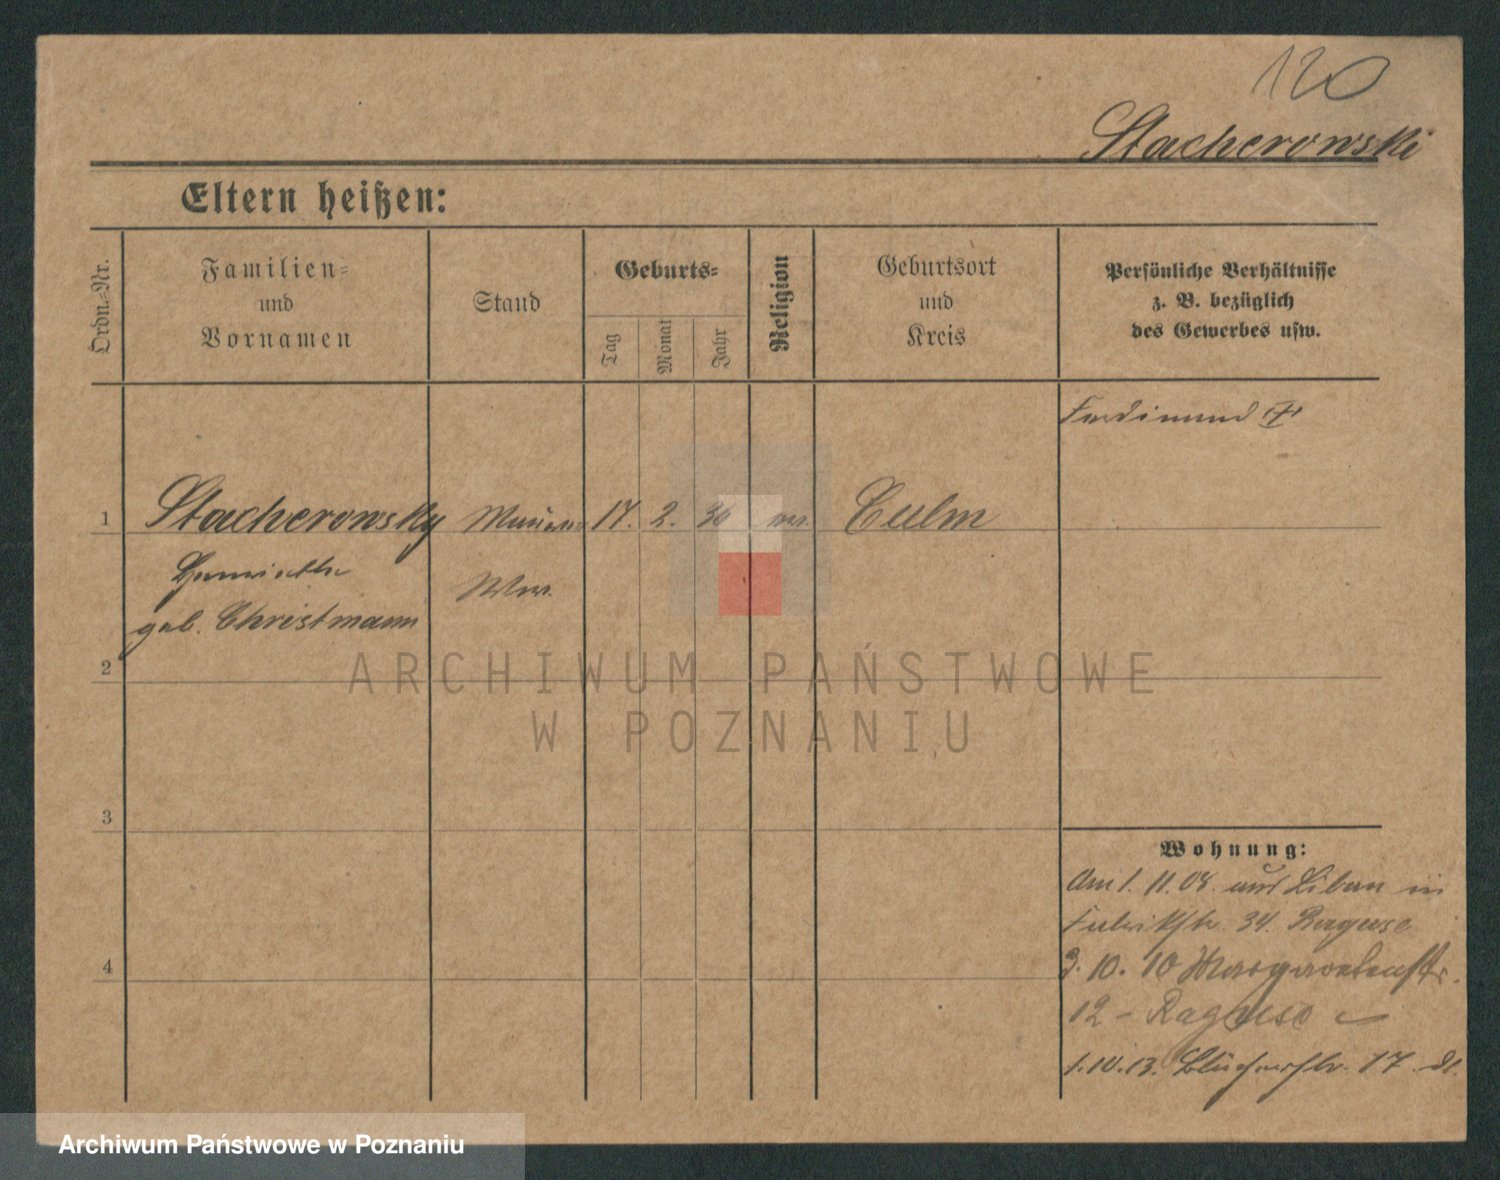 120
Stacherowski
Eltern heißen:
Ordn.-Nr.
Familien-
und
Vornamen
Stand
Geburts-
Tag
Monat
Jahr
Religion
Geburtsort
und
Kreis
Persönliche Verhältnisse
z. B. bezüglich
des Gewerbes usw.
Ferdinand
1 Stacherowsky Maurer 17. 2. 30 Culm
Henriette Wwe.
geb. Christmann
2
3
4
Wohnung:
Am 1. 11. 08. in
34. Raguse
3. 10. 10 Margarethenstr.
12 - Raguse
1. 10. 13. Blücherstr. 17
ARCHIWUM PAŃSTWOWE
W POZNANIU
Archiwum Państwowe w Poznaniu